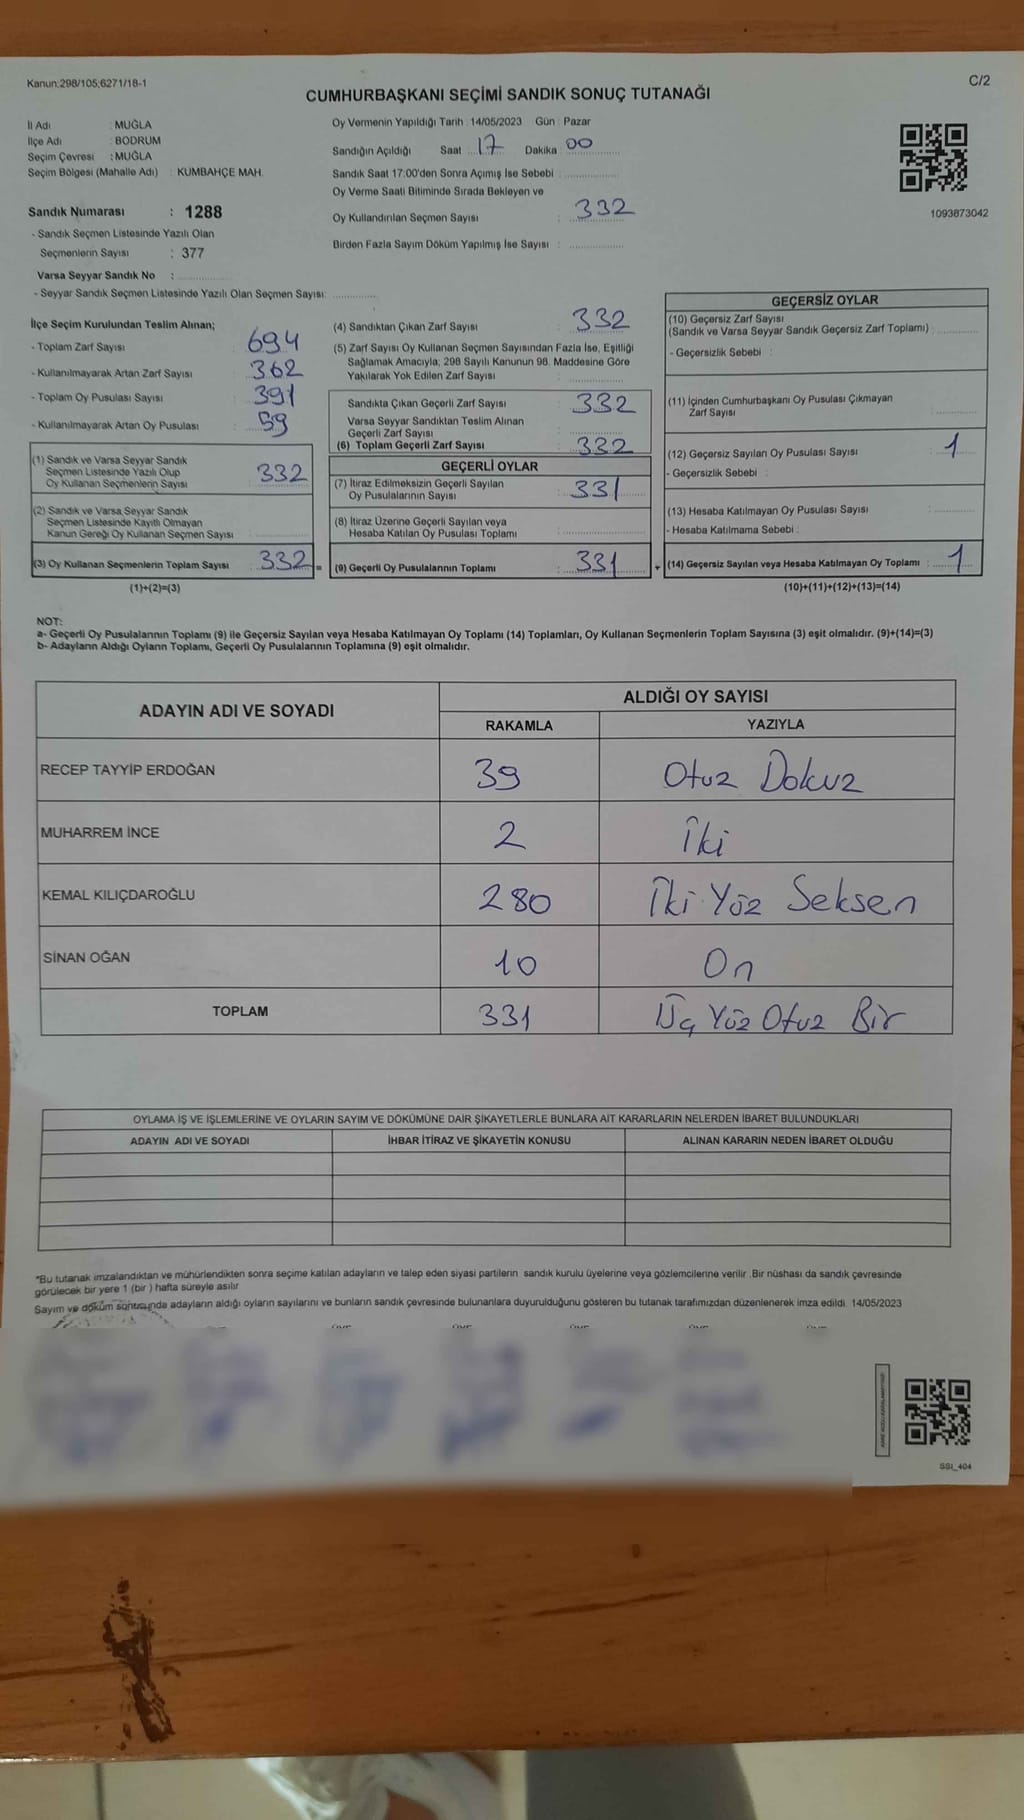 Kanun;298/105;6271/18-1
C/2
CUMHURBAŞKANI SEÇİMİ SANDIK SONUÇ TUTANAĞI
İl Adı : MUĞLA
İlçe Adı : BODRUM
Seçim Çevresi : MUĞLA
Seçim Bölgesi (Mahalle Adı) : KUMBAHÇE MAH.
Sandık Numarası : 1288
- Sandık Seçmen Listesinde Yazılı Olan
Seçmenlerin Sayısı : 377
Varsa Seyyar Sandık No :
- Seyyar Sandık Seçmen Listesinde Yazılı Olan Seçmen Sayısı:
Oy Vermenin Yapıldığı Tarih : 14/05/2023 Gün : Pazar
Sandığın Açıldığı Saat 17 Dakika 00
Sandık Saat 17:00'den Sonra Açımış İse Sebebi :
Oy Verme Saati Bitiminde Sırada Bekleyen ve
Oy Kullandırılan Seçmen Sayısı : 332
Birden Fazla Sayım Döküm Yapılmış İse Sayısı :
1093873042
İlçe Seçim Kurulundan Teslim Alınan;
- Toplam Zarf Sayısı : 694
- Kullanılmayarak Artan Zarf Sayısı : 362
- Toplam Oy Pusulası Sayısı : 391
- Kullanılmayarak Artan Oy Pusulası : 59
(1) Sandık ve Varsa Seyyar Sandık
Seçmen Listesinde Yazılı Olup
Oy Kullanan Seçmenlerin Sayısı : 332
(2) Sandık ve Varsa Seyyar Sandık
Seçmen Listesinde Kayıtlı Olmayan
Kanun Gereği Oy Kullanan Seçmen Sayısı :
(3) Oy Kullanan Seçmenlerin Toplam Sayısı : 332 =
(1)+(2)=(3)
(4) Sandıktan Çıkan Zarf Sayısı : 332
(5) Zarf Sayısı Oy Kullanan Seçmen Sayısından Fazla İse, Eşitliği
Sağlamak Amacıyla; 298 Sayılı Kanunun 98. Maddesine Göre
Yakılarak Yok Edilen Zarf Sayısı :
Sandıkta Çıkan Geçerli Zarf Sayısı : 332
Varsa Seyyar Sandıktan Teslim Alınan
Geçerli Zarf Sayısı :
(6) Toplam Geçerli Zarf Sayısı : 332
GEÇERLİ OYLAR
(7) İtiraz Edilmeksizin Geçerli Sayılan
Oy Pusulalarının Sayısı : 331
(8) İtiraz Üzerine Geçerli Sayılan veya
Hesaba Katılan Oy Pusulası Toplamı :
(9) Geçerli Oy Pusulalarının Toplamı : 331 +
GEÇERSİZ OYLAR
(10) Geçersiz Zarf Sayısı
(Sandık ve Varsa Seyyar Sandık Geçersiz Zarf Toplamı) :
- Geçersizlik Sebebi :
(11) İçinden Cumhurbaşkanı Oy Pusulası Çıkmayan
Zarf Sayısı :
(12) Geçersiz Sayılan Oy Pusulası Sayısı : 1
- Geçersizlik Sebebi :
(13) Hesaba Katılmayan Oy Pusulası Sayısı :
- Hesaba Katılmama Sebebi :
(14) Geçersiz Sayılan veya Hesaba Katılmayan Oy Toplamı : 1
(10)+(11)+(12)+(13)=(14)
NOT:
a- Geçerli Oy Pusulalarının Toplamı (9) ile Geçersiz Sayılan veya Hesaba Katılmayan Oy Toplamı (14) Toplamları, Oy Kullanan Seçmenlerin Toplam Sayısına (3) eşit olmalıdır. (9)+(14)=(3)
b- Adayların Aldığı Oyların Toplamı, Geçerli Oy Pusulalarının Toplamına (9) eşit olmalıdır.
ADAYIN ADI VE SOYADI
ALDIĞI OY SAYISI
RAKAMLA YAZIYLA
RECEP TAYYİP ERDOĞAN 39 Otuz Dokuz
MUHARREM İNCE 2 İki
KEMAL KILIÇDAROĞLU 280 İki Yüz Seksen
SİNAN OĞAN 10 On
TOPLAM 331 Üç Yüz Otuz Bir
OYLAMA İŞ VE İŞLEMLERİNE VE OYLARIN SAYIM VE DÖKÜMÜNE DAİR ŞİKAYETLERLE BUNLARA AİT KARARLARIN NELERDEN İBARET BULUNDUKLARI
ADAYIN ADI VE SOYADI İHBAR İTİRAZ VE ŞİKAYETİN KONUSU ALINAN KARARIN NEDEN İBARET OLDUĞU
*Bu tutanak imzalandıktan ve mühürlendikten sonra seçime katılan adayların ve talep eden siyasi partilerin sandık kurulu üyelerine veya gözlemcilerine verilir .Bir nüshası da sandık çevresinde
görülecek bir yere 1 (bir ) hafta süreyle asılır.
Sayım ve döküm sonucunda adayların aldığı oyların sayılarını ve bunların sandık çevresinde bulunanlara duyurulduğunu gösteren bu tutanak tarafımızdan düzenlenerek imza edildi. 14/05/2023
SSI_404